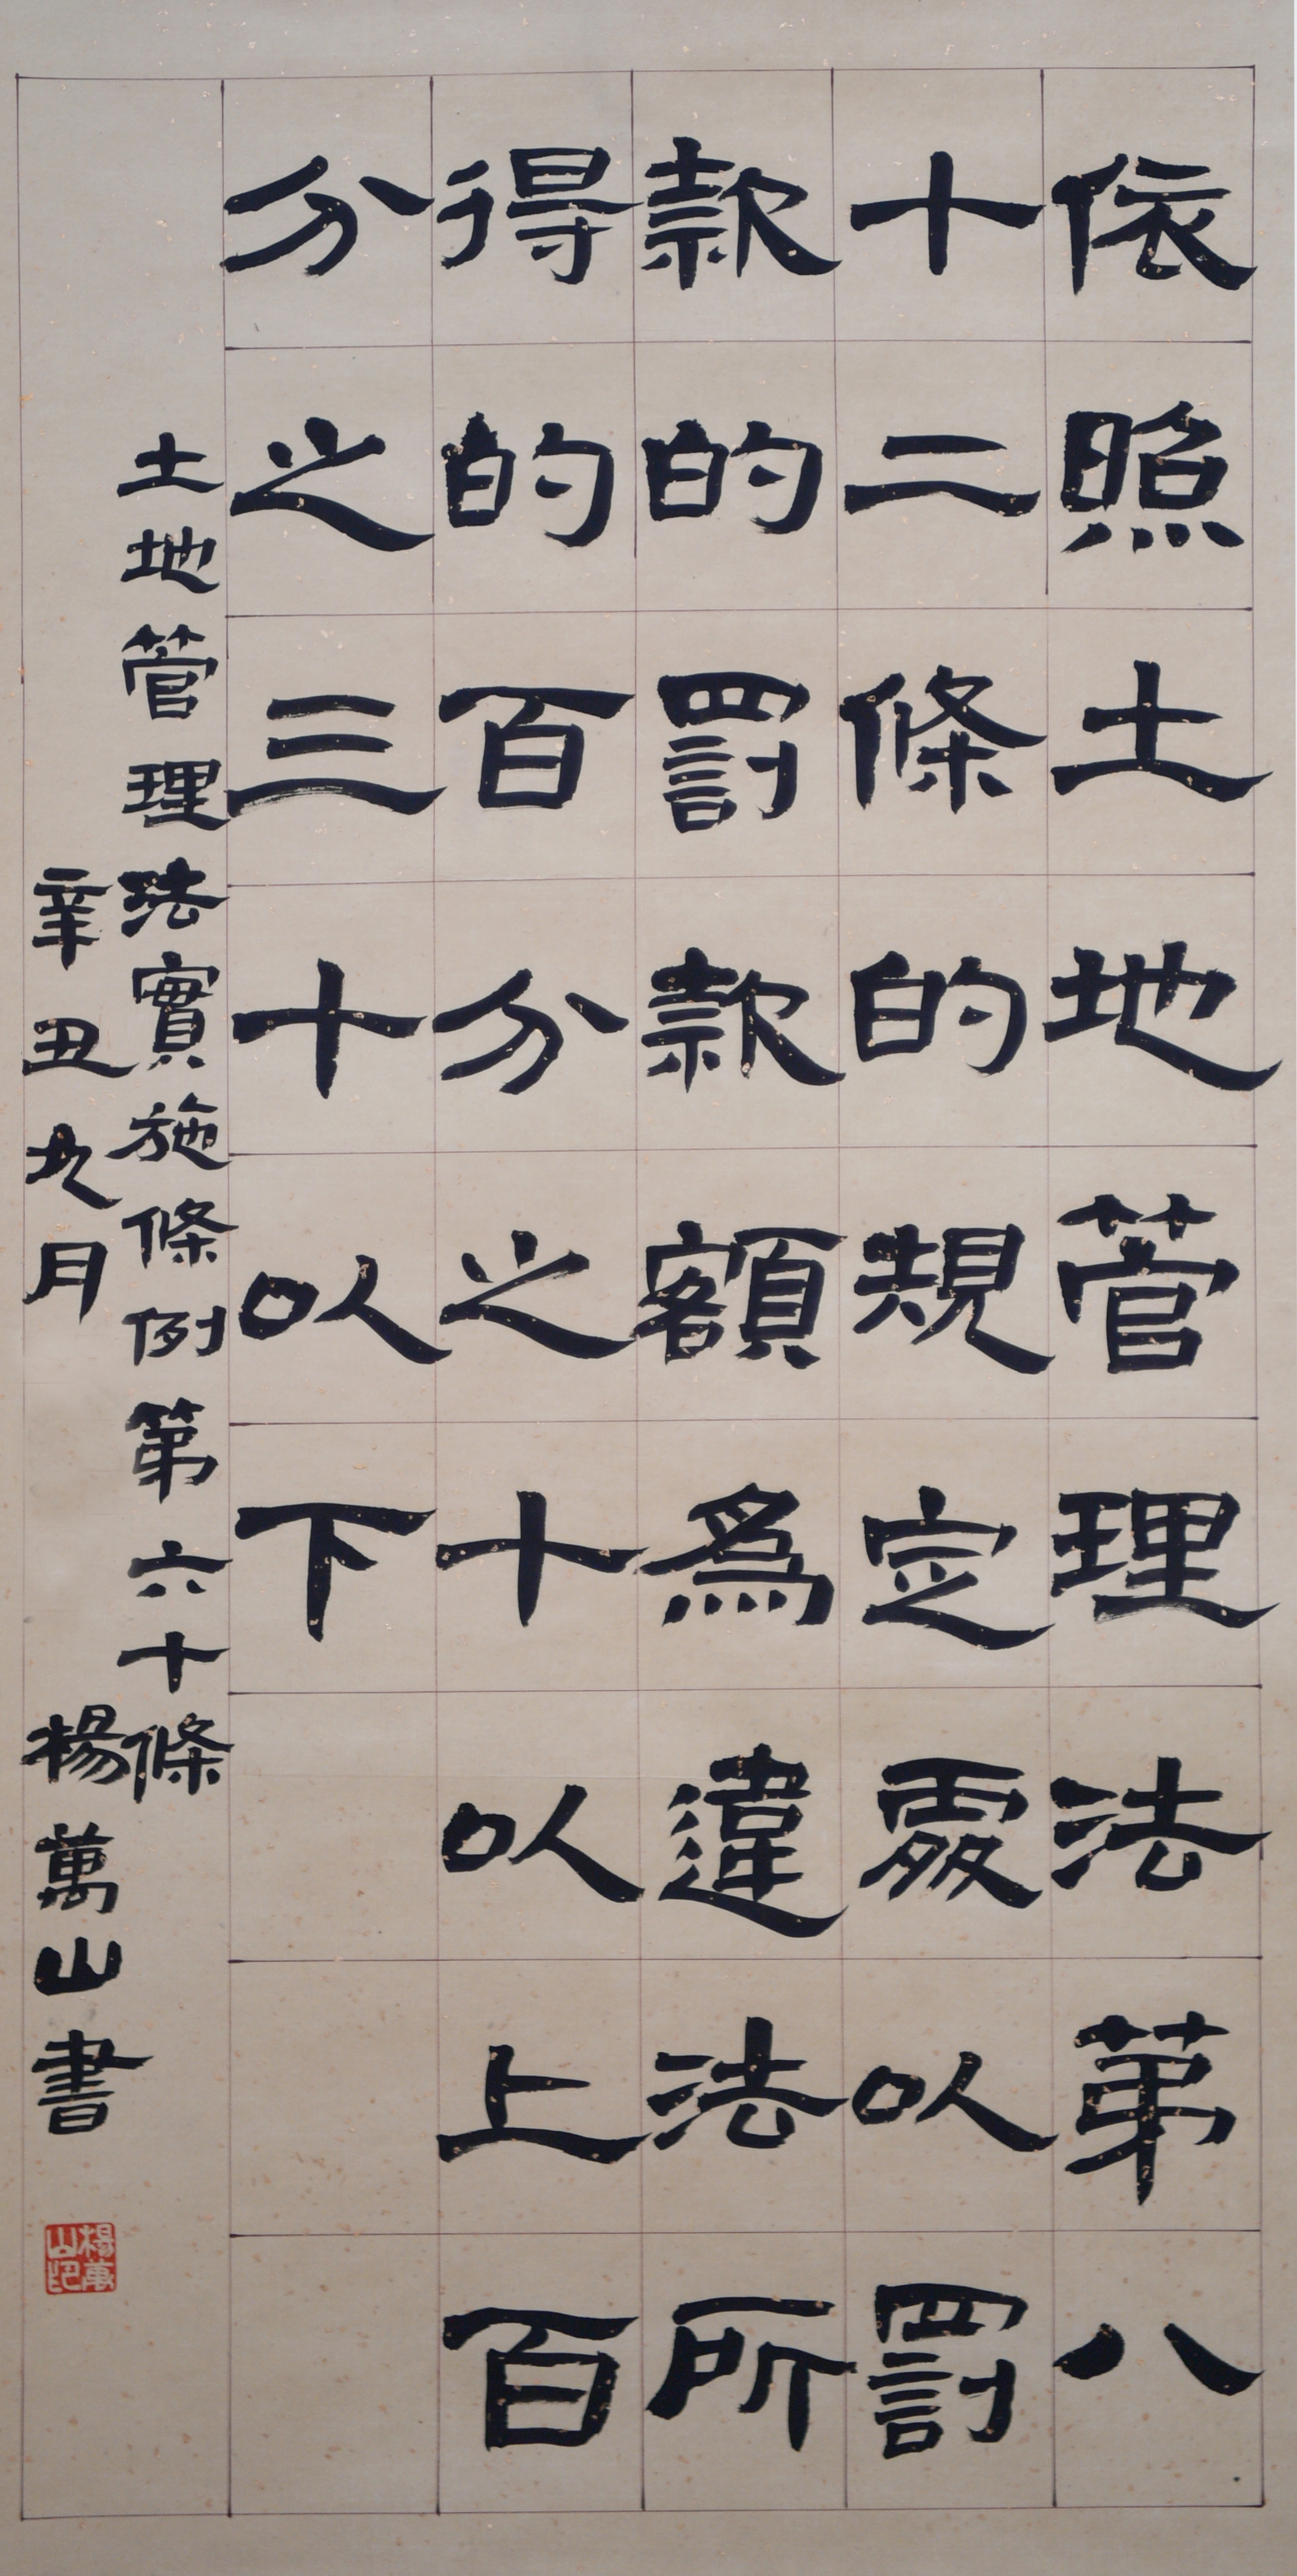 依照土地管理法第八
十二條的規定處以罰
款的罰款額為違法所
得的百分之十以上百
分之三十以下
土地管理法實施條例第六十條
辛丑九月 楊萬山書
楊萬山印